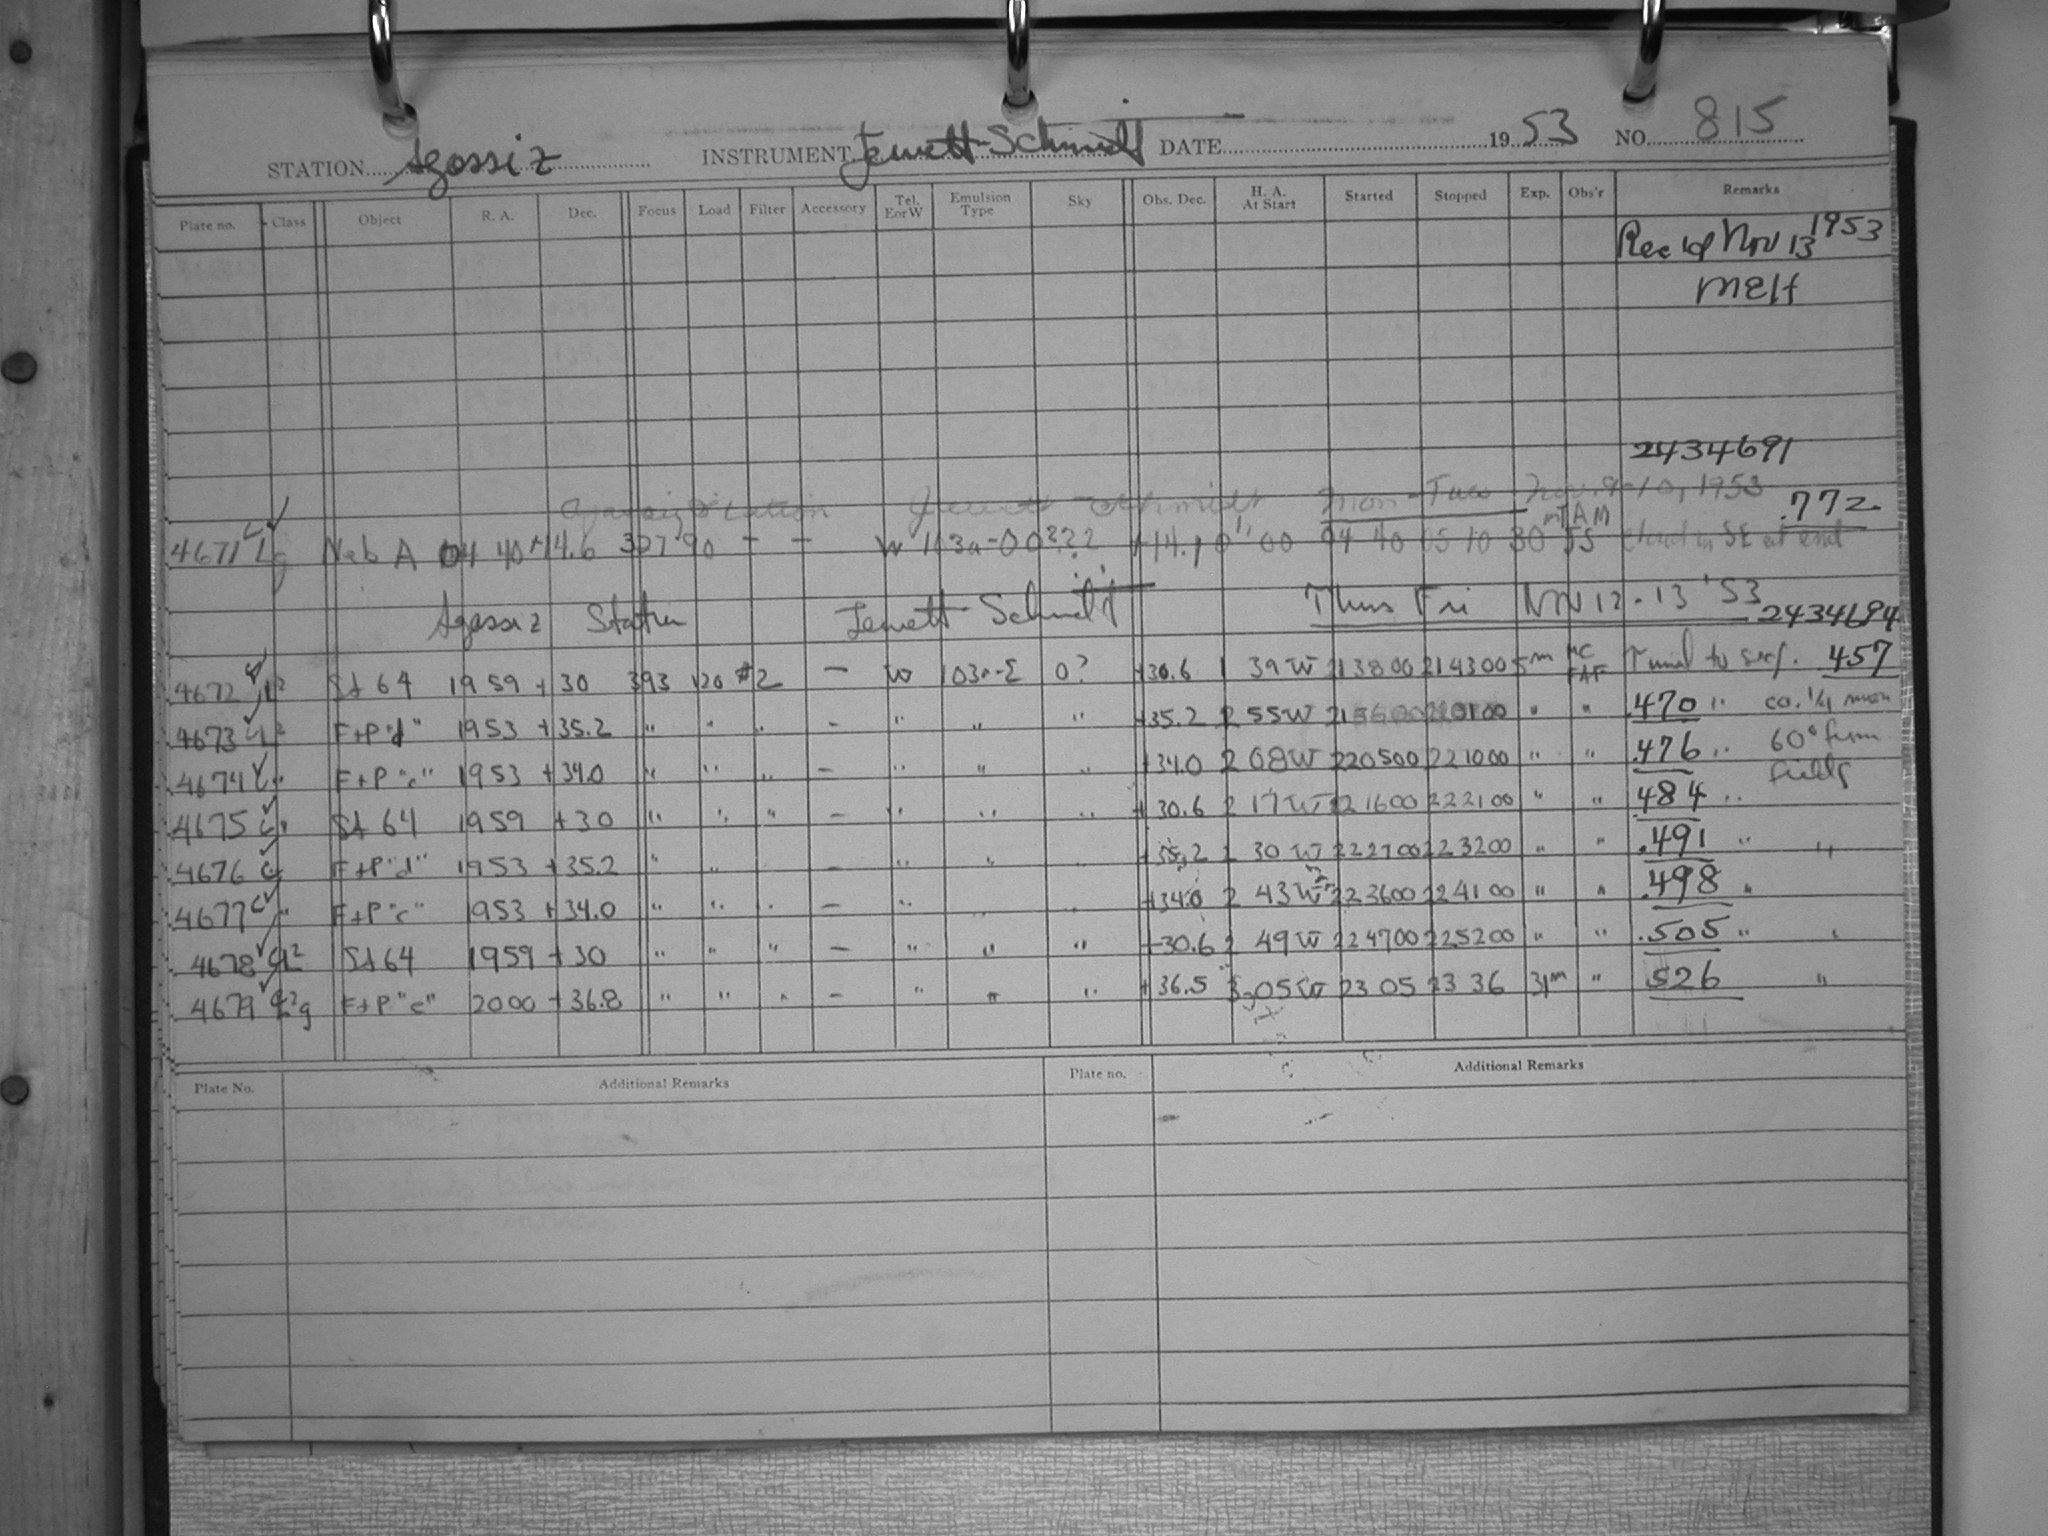 STATION Agassiz INSTRUMENT Jewett-Schmidt DATE 1953 NO. 815
Plate no. Class Object R. A. Dec. Focus Load Filter Accessory Tel. E or W Emulsion Type Sky Obs. Dec. H. A. At Start Started Stopped Exp. Obs'r Remarks
Rec'd Nov 13 1953
2434691
Agassiz Station Jewett Schmidt Mon-Tues Nov. 9-10, 1953 .772
4671 Neb A 04 40 +14.6 90 - - W 103a-O +14.1 00 04 40 05 10 30 cloud in SE at end
Agassiz Station Jewett-Schmidt Thurs Fri Nov 12-13 '53 2434694
4672 SA 64 1959 +30 393 120 #2 - W 103a-E 0? +30.6 1 39 W 213800 214300 5m .457
4673 F+P "d" 1953 +35.2 " " " - " " " +35.2 55 W 220100 " " .470 " co. 1/4 moon
4674 F+P "c" 1953 +34.0 " " " - " " " +34.0 2 08 W 220500 221000 " " .476 " 60° from
4675 SA 64 1959 +30 " " " - " " " +30.6 2 17 W 221600 222100 " " .484 " fields
4676 F+P "d" 1953 +35.2 " " - " " " +35.2 2 30 W 222700 223200 " " .491 " "
4677 F+P "c" 1953 +34.0 " " " - " " +34.0 2 43 W 223600 224100 " " .498 "
4678 SA 64 1959 +30 " " " - " " " +30.6 2 49 W 224700 225200 " " .505 " "
4679 F+P "e" 2000 +36.8 " " " - " " " +36.5 3 05 W 23 05 23 36 31m " .526 "
Plate No. Additional Remarks Plate no. Additional Remarks